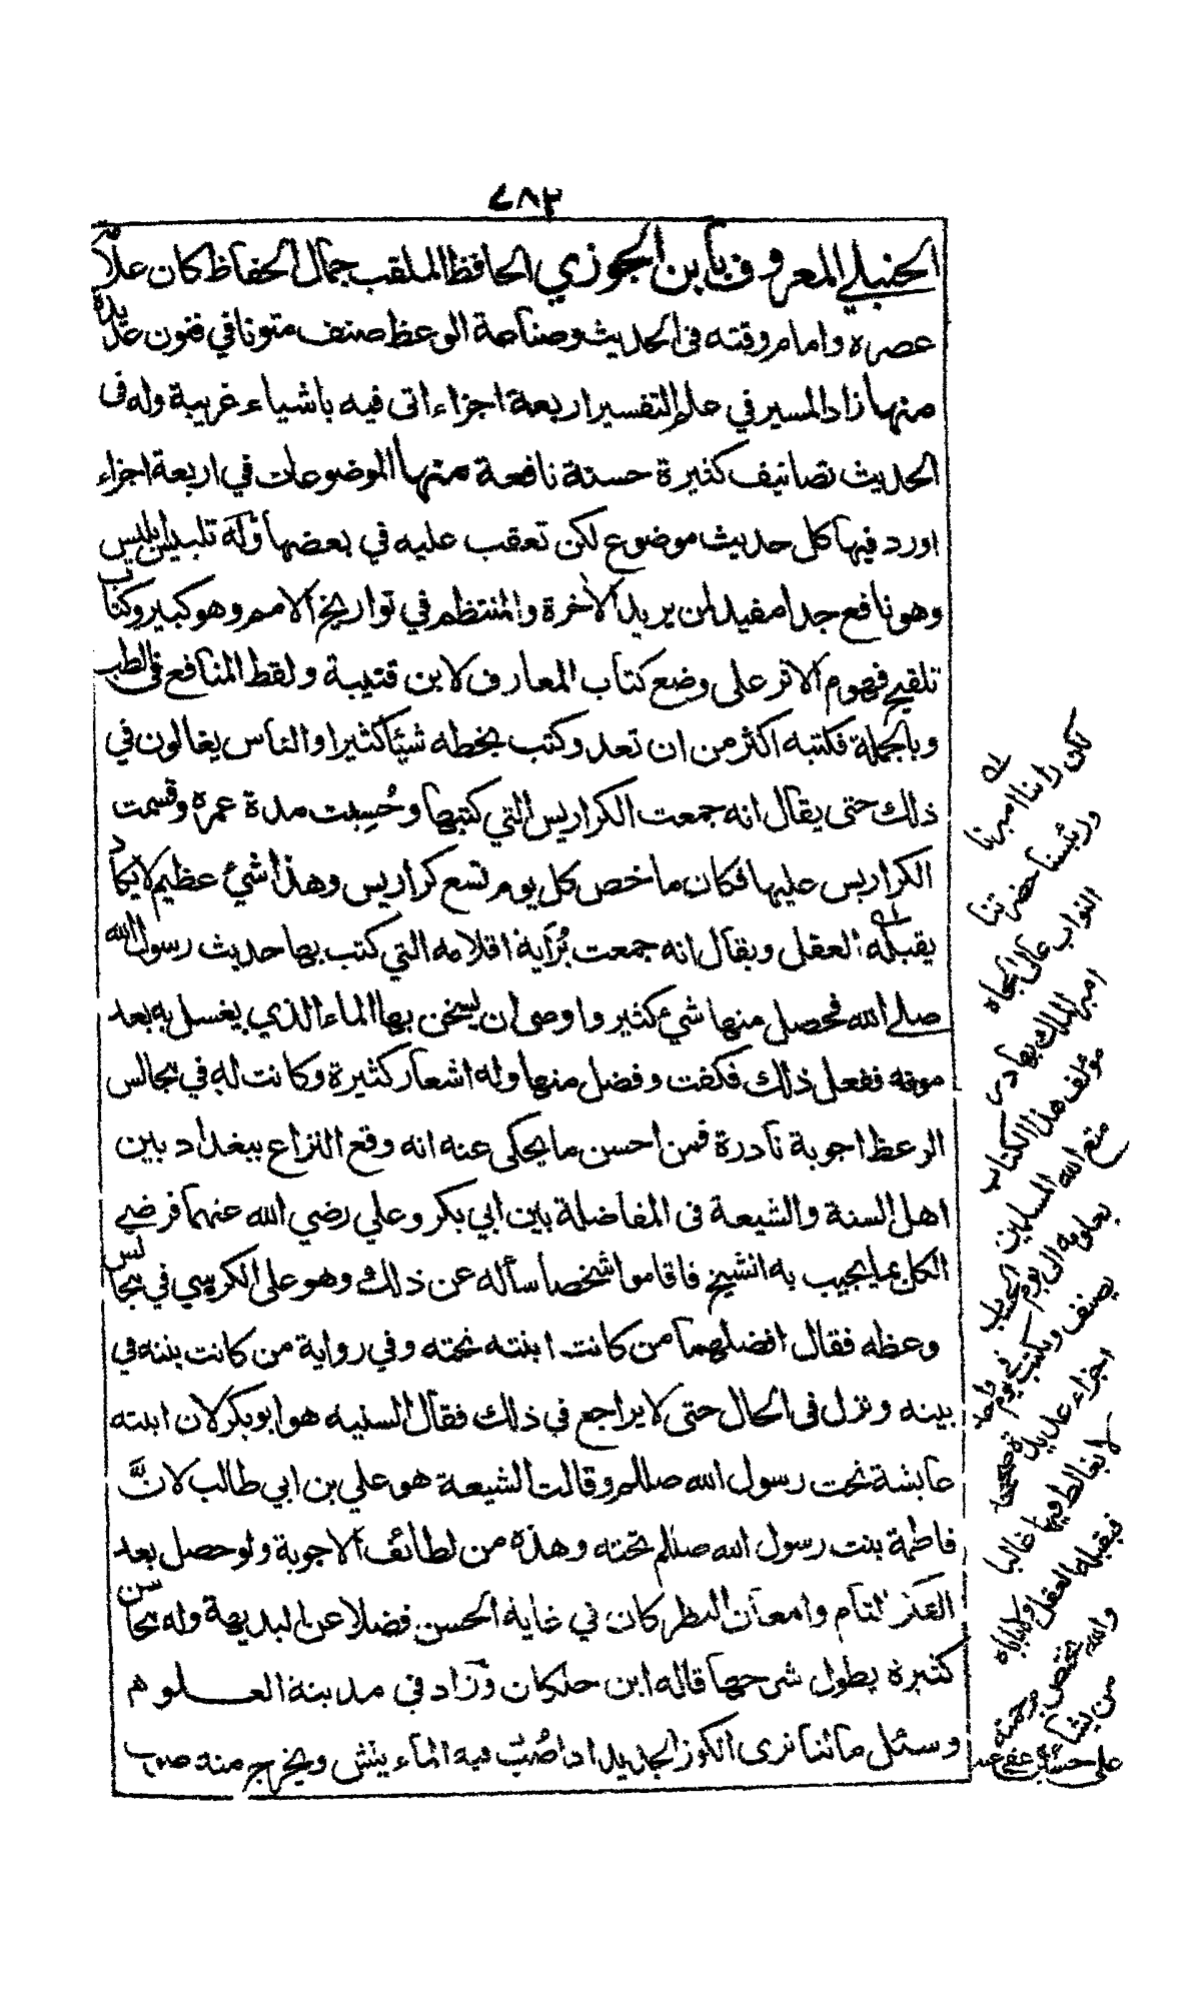 ٤٨٣
الحنبلي المعروف بابن الجوزي الحافظ الملقب جمال الحفاظ كان علامة
عصره وامام وقته فى الحديث وصناعة الوعظ صنف متونا في فنون عديدة
منها زاد المسير في علم التفسير اربعة اجزاء اتى فيه باشياء غريبة وله فى
الحديث تصانيف كثيرة حسنة نافعة منها الموضوعات في اربعة اجزاء
اورد فيها كل حديث موضوع لكن تعقب عليه في بعضها وله تلبيس ابليس
وهو نافع جدا مفيد لمن يريد الآخرة والمنتظم في تواريخ الامم وهو كبير وكتاب
تلقيح فهوم الاثر على وضع كتاب المعارف لابن قتيبة ولقط المنافع فى الطب
وبالجملة فكتبه اكثر من ان تعد وكتب بخطه شيئا كثيرا والناس يغالون في
ذلك حتى يقال انه جمعت الكراريس التي كتبها وحُسِبت مدة عمره وقسمت
الكراريس عليها فكان ما خص كل يوم تسع كراريس وهذا شيء عظيم لا يكاد
يقبله العقل ويقال انه جمعت بُرَاية اقلامه التي كتب بها حديث رسول الله
صلى الله فحصل منها شيء كثير واوصى ان يسخن بها الماء الذي يغسل به بعد
موته ففعل ذلك فكفت وفضل منها وله اشعار كثيرة وكانت له في مجالس
الوعظ اجوبة نادرة فمن احسن ما يحكى عنه انه وقع النزاع ببغداد بين
اهل السنة والشيعة فى المفاضلة بين ابي بكر وعلي رضي الله عنهما فرضي
الكل بما يجيب به الشيخ فاقاموا شخصا سأله عن ذلك وهو على الكرسي في مجالس
وعظه فقال افضلهما من كانت ابنته تحته وفي رواية من كانت بنته في
بيته ونزل فى الحال حتى لا يراجع في ذلك فقال السنيه هو ابو بكر لان ابنته
عايشة تحت رسول الله صللم وقالت الشيعة هو علي بن ابي طالب لانَّ
فاطمة بنت رسول الله صللم تحته وهذه من لطائف الاجوبة ولو حصل بعد
الفكر التام وامعان النظر كان في غاية الحسن فضلا عن البديهة وله محاسن
كثيرة يطول شرحها قاله ابن خلكان وزاد في مدينة العلوم
وسئل ما لنا نرى الكوز الجديد اذا صُبّ فيه الماء ينش ويخرج منه صوت
له
كان رأينا اميرنا
ورئيسنا حضرتنا
النواب عالى الجاه
امير الملك بهادر
مؤلف هذا الكتاب
متع الله المسلمين
بعلومه الى يوم الحساب
يصنف ويكتب في يوم واحد
اجزاء عديدة
لا يغالط فيها غالبا
فيقبله العقل ولا ياباه
والله يختص برحمته
من يشاء
على حسين عفى عنه